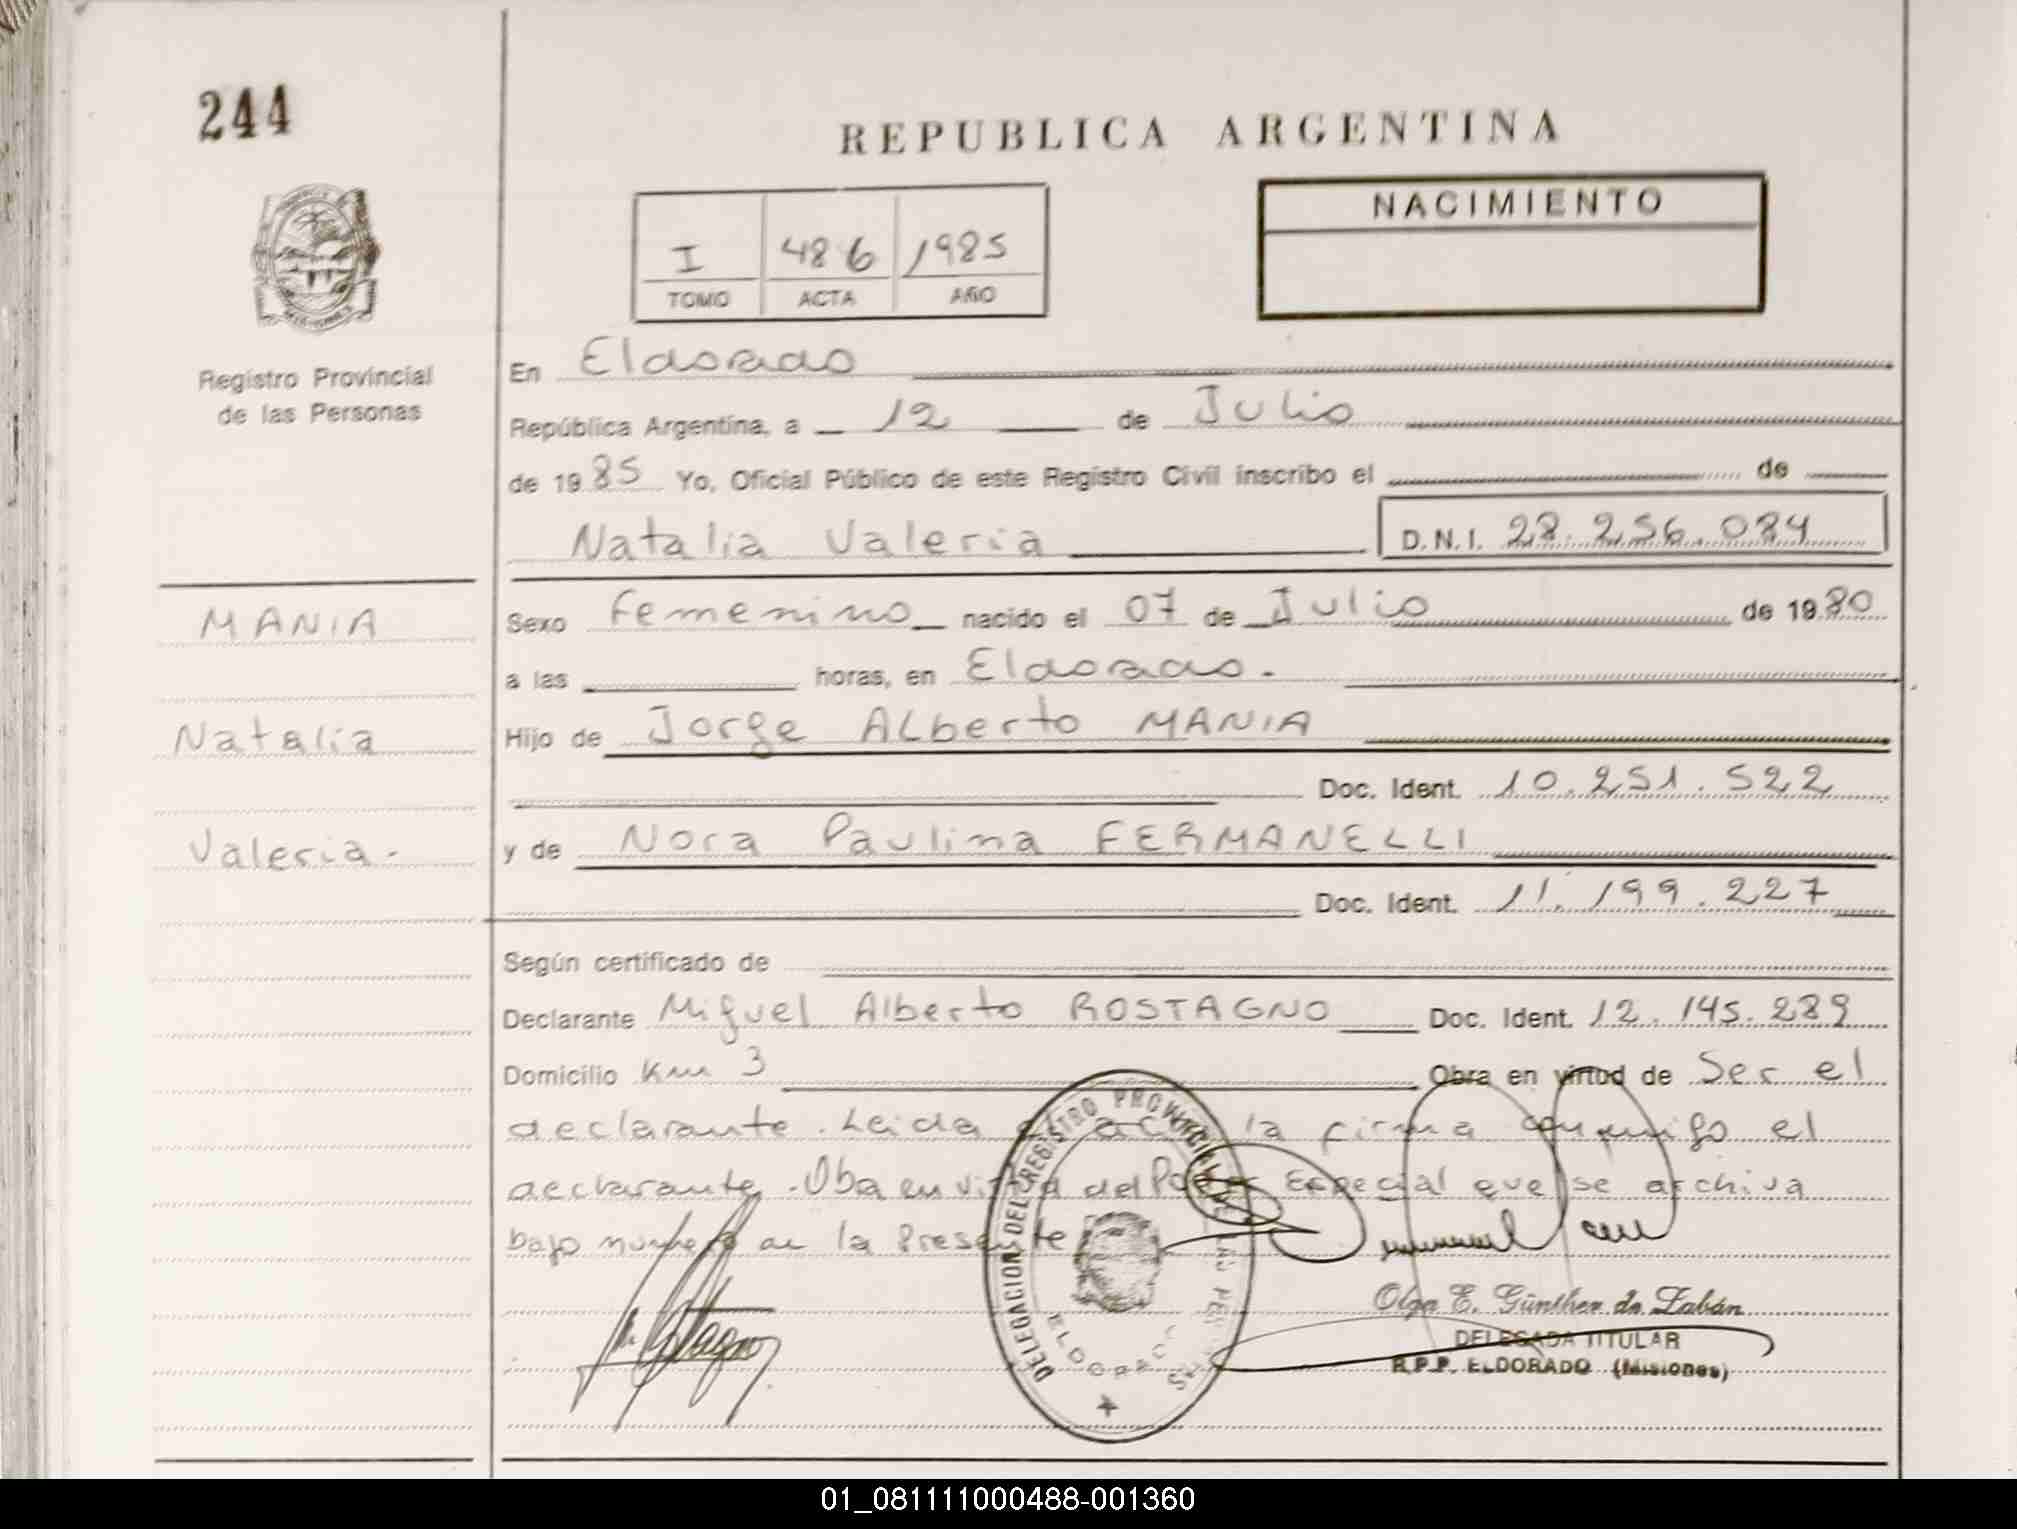 244
REPUBLICA ARGENTINA
NACIMIENTO
I 486 1985
TOMO ACTA AÑO
Registro Provincial
de las Personas
En Eldorado
República Argentina, a 12 de Julio
de 1985 Yo, Oficial Público de este Registro Civil inscribo el de
Natalia Valeria D.N.I. 28.256.084
MANIA
Natalia
Valeria.-
Sexo Femenino nacido el 07 de Julio de 1980
a las horas, en Eldorado.
Hijo de Jorge ALberto MANIA
Doc. Ident. 10.251.522
y de Nora Paulina FERMANELLI
Doc. Ident. 11.199.227
Según certificado de
Declarante Miguel Alberto ROSTAGNO Doc. Ident. 12.145.289
Domicilio Km 3 Obra en virtud de Ser el
declarante. Leida el acta la firma conmigo el
declarante. Oba en virtud del Poder Especial que se archiva
bajo numero de la Presente
DELEGACION DEL REGISTRO PROVINCIAL DE LAS PERSONAS
ELDORADO
Olga E. Günther de Zabán
DELEGADA TITULAR
R.P.P. ELDORADO (Misiones)
01_081111000488-001360